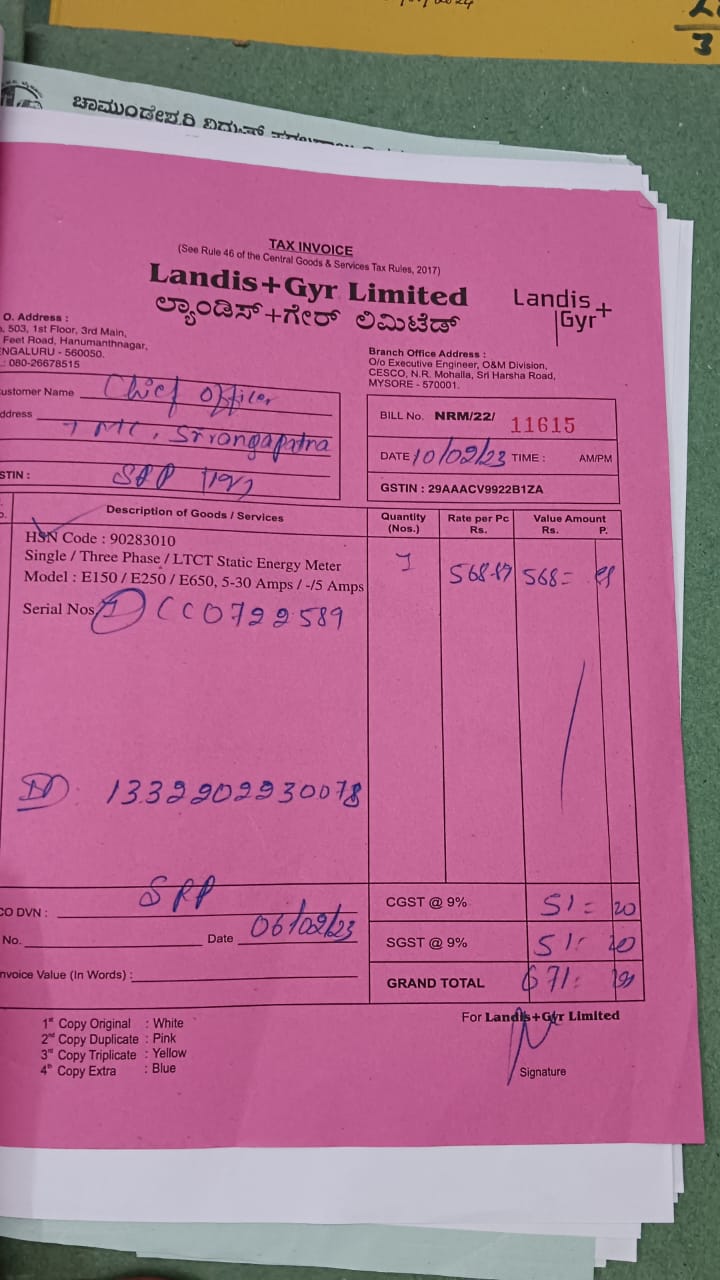 ಚಾಮುಂಡೇಶ್ವರಿ ವಿದ್ಯುತ್
3
TAX INVOICE
(See Rule 46 of the Central Goods & Services Tax Rules, 2017)
Landis+Gyr Limited
ಲ್ಯಾಂಡಿಸ್+ಗೇರ್ ಲಿಮಿಟೆಡ್
Landis+
Gyr
O. Address :
503, 1st Floor, 3rd Main,
Feet Road, Hanumanthnagar,
NGALURU - 560050.
: 080-26678515
Branch Office Address :
O/o Executive Engineer, O&M Division,
CESCO, N.R. Mohalla, Sri Harsha Road,
MYSORE - 570001.
ustomer Name Chief Officer
ddress TMC, Srirangapatna
STIN :
BILL No. NRM/22/ 11615
DATE 10/02/23 TIME : AM/PM
GSTIN : 29AAACV9922B1ZA
Description of Goods / Services
Quantity (Nos.)
Rate per Pc Rs.
Value Amount Rs. P.
HSN Code : 90283010
Single / Three Phase / LTCT Static Energy Meter
Model : E150 / E250 / E650, 5-30 Amps / -/5 Amps
1 568-89 568=
Serial Nos 1 CC0722589
1332202930078
CO DVN : SRP
No. Date 06/02/23
nvoice Value (In Words) :
CGST @ 9% 51= 20
SGST @ 9% 51= 20
GRAND TOTAL 671=
1st Copy Original : White
2nd Copy Duplicate : Pink
3rd Copy Triplicate : Yellow
4th Copy Extra : Blue
For Landis+Gyr Limited
Signature